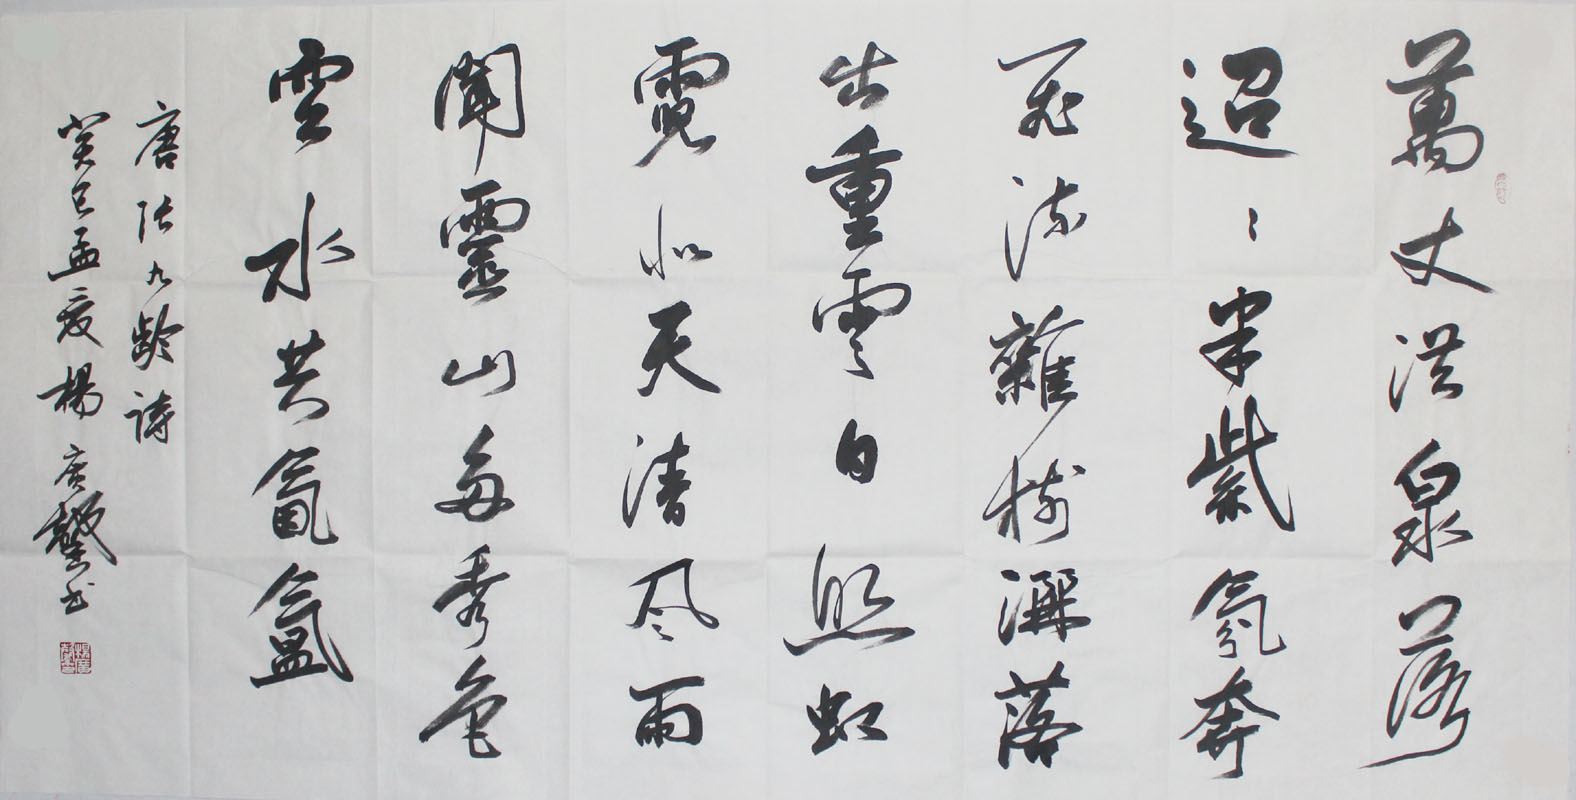 萬丈洪泉落
迢〻半紫氛奔
飛流雜樹灑落
出重雲日照虹
霓似天清風雨
聞靈山多秀色
雲水共氤氳
唐張九齡詩
癸巳孟夏楊廣馨书